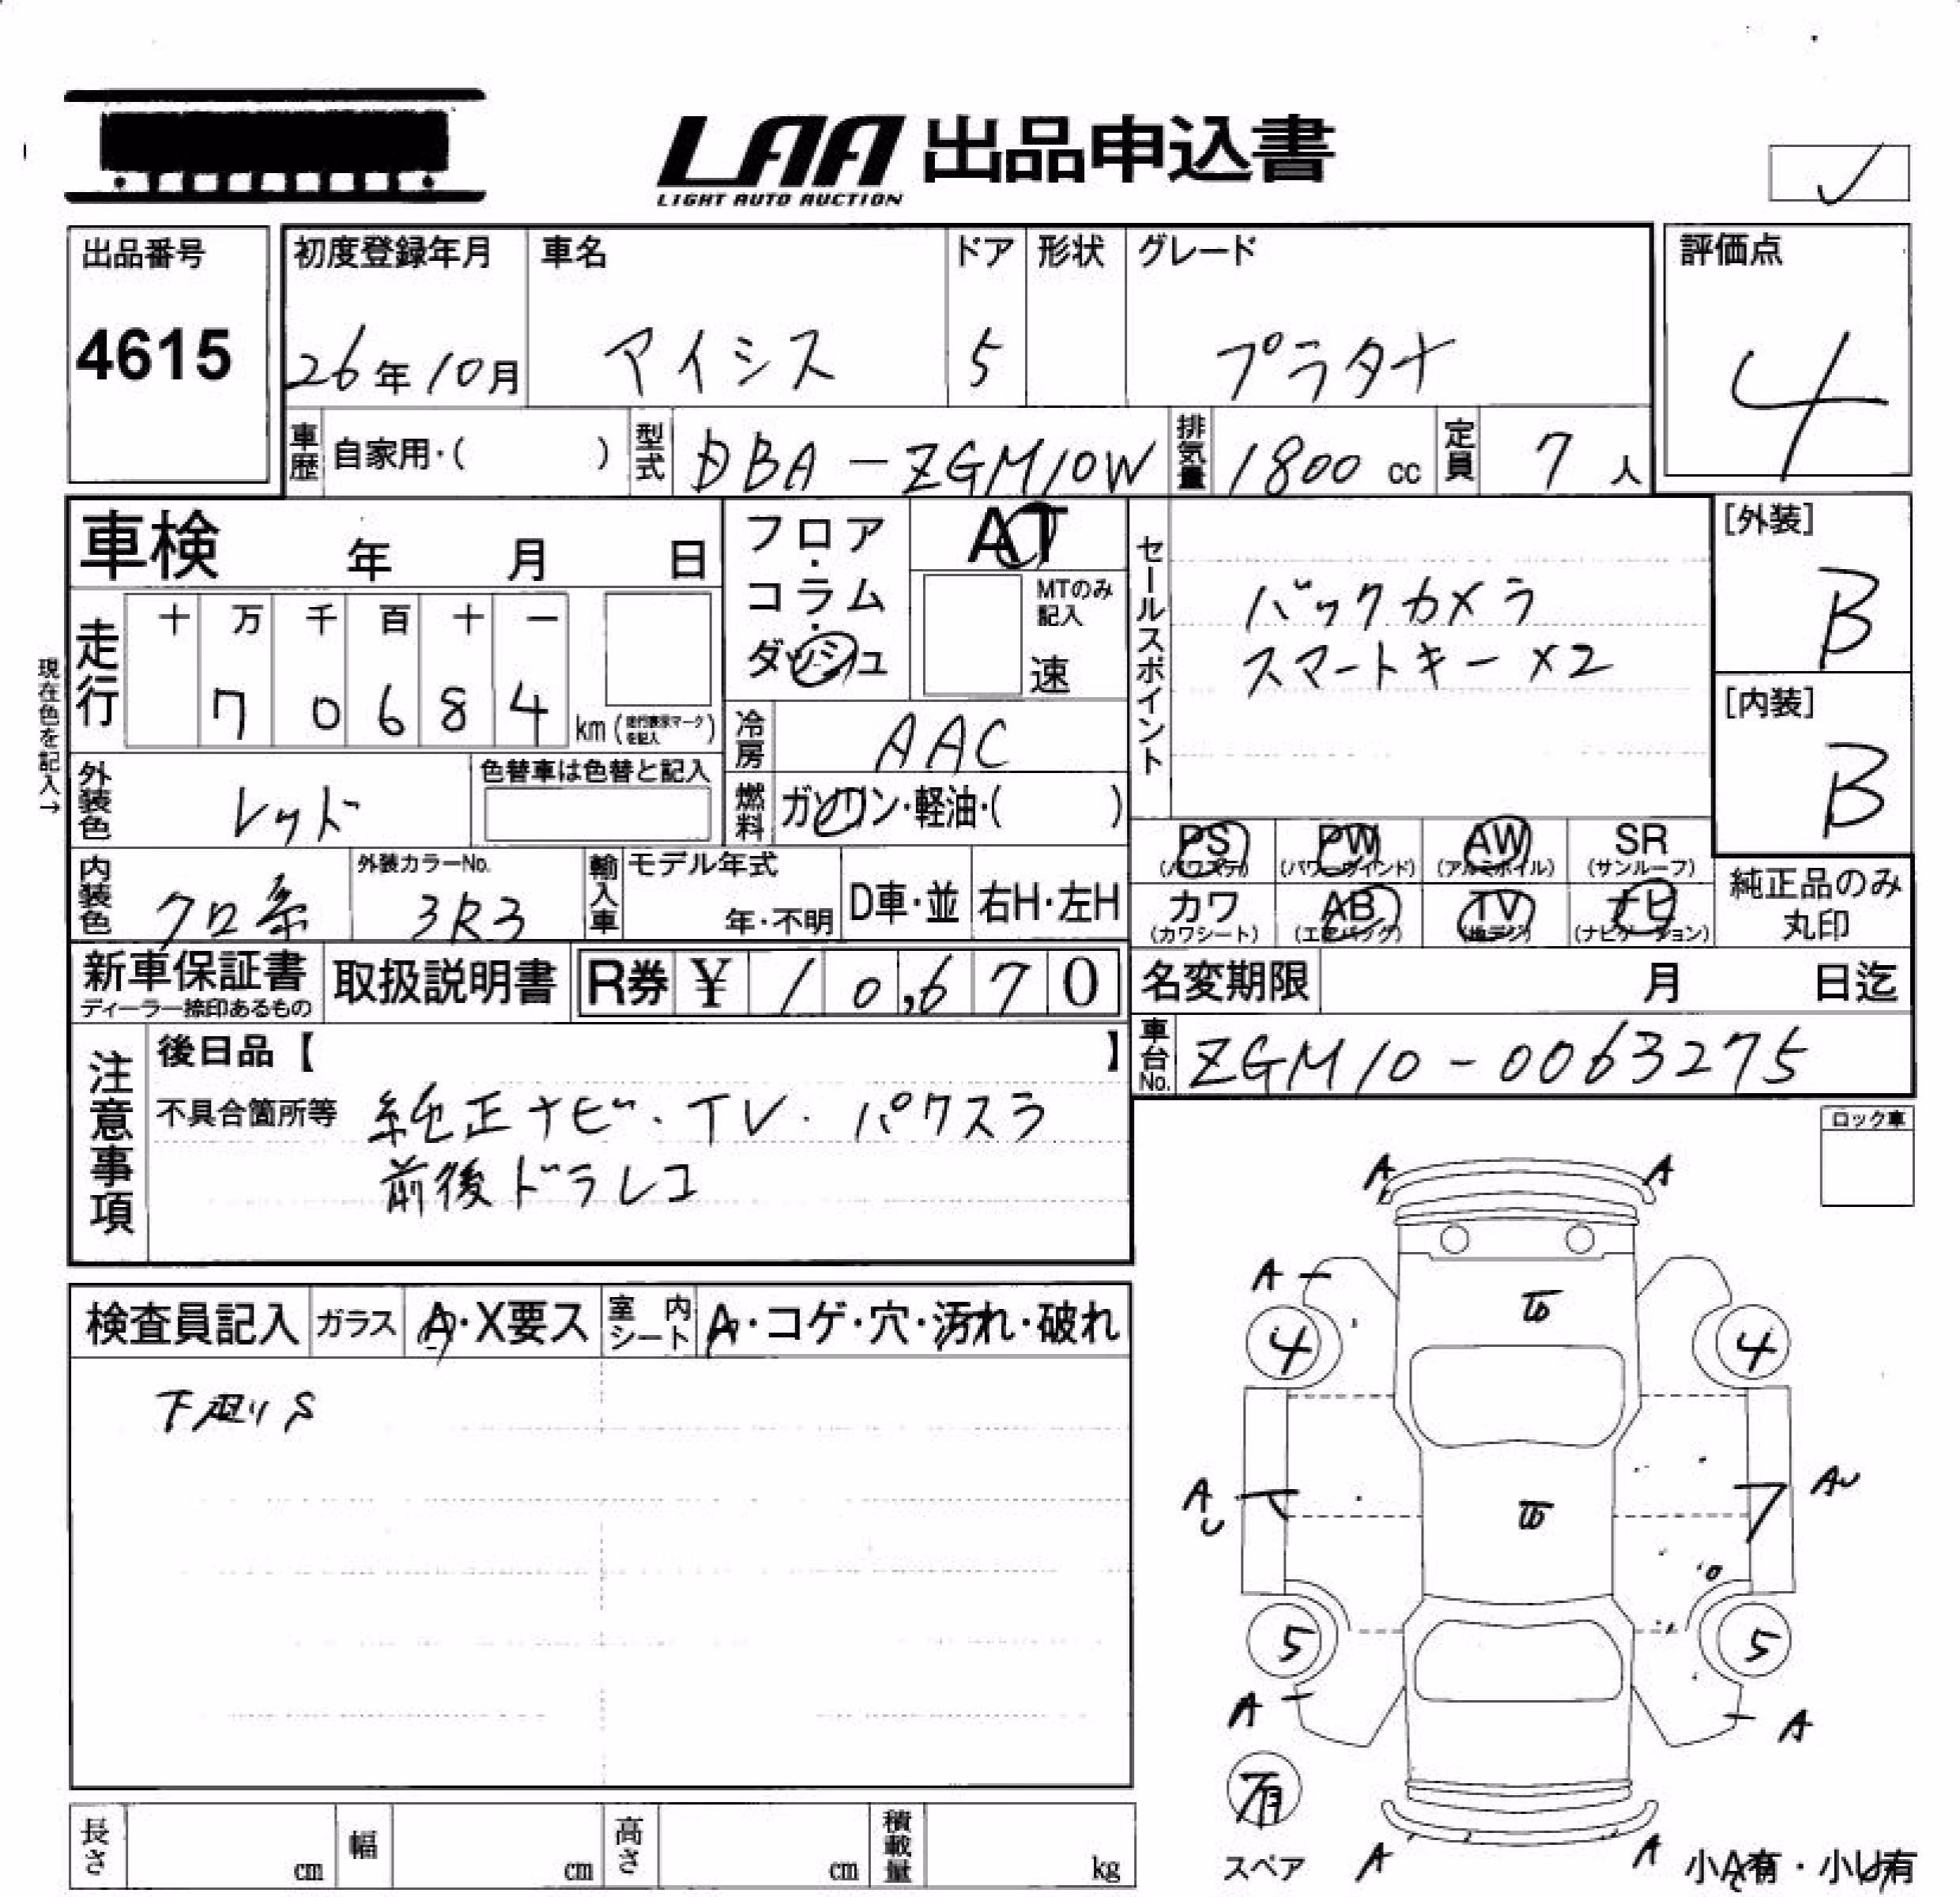 LAA 出品申込書
LIGHT AUTO AUCTION
出品番号
4615
初度登録年月
26年10月
車名
アイシス
ドア
5
形状
グレード
プラタナ
評価点
4
車歴 自家用・( )
型式 DBA-ZGM10W
排気量 1800 cc
定員 7人
車検 年 月 日
フロア・コラム・ダッシュ
AT
MTのみ記入
速
セールスポイント
バックカメラ
スマートキー×2
[外装]
B
[内装]
B
現在色を記入→
走行
十 万 千 百 十 一
7 0 6 8 4 km (走行表示マークを記入)
冷房 AAC
外装色 レッド
色替車は色替と記入
燃料 ガソリン・軽油・( )
PS (パワステ) PW (パワーウインド) AW (アルミホイル) SR (サンルーフ)
カワ (カワシート) AB (エアバック) TV (地デジ) ナビ (ナビゲーション)
純正品のみ
丸印
内装色 クロ系
外装カラーNo.
3R3
輸入車 モデル年式
年・不明
D車・並 右H・左H
新車保証書
ディーラー捺印あるもの
取扱説明書
R券 ¥ 10,670
名変期限 月 日迄
車台No. ZGM10-0063275
注意事項
後日品【 】
不具合箇所等 純正ナビ・TV・パクスラ
前後ドラレコ
ロック車
検査員記入 ガラス A・X要ス 室内シート A・コゲ・穴・汚れ・破れ
下廻りS
A A
A
4 4
A
U
AU
5 5
A A
有
スペア
A A
小A有・小U有
長さ cm 幅 cm 高さ cm 積載量 kg